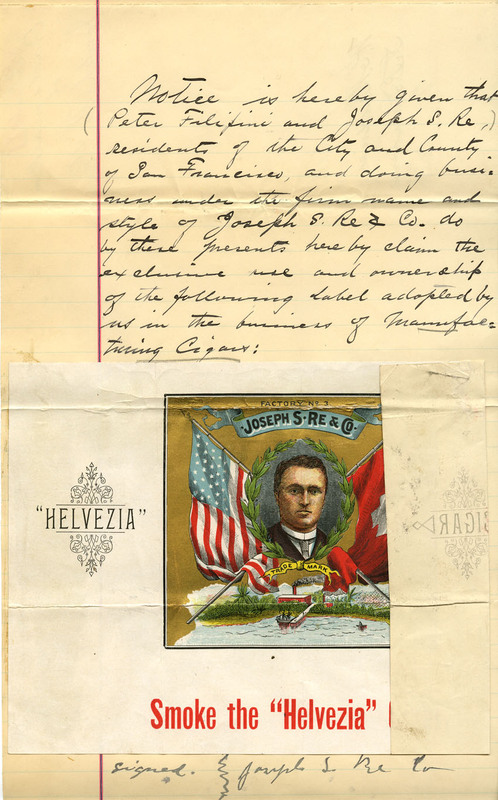 Notice is hereby given that
(Peter Filifini and Joseph S. Re,)
residents of the City and County
of San Francisco, and doing busi-
ness under the firm name and
style of Joseph S. Re & Co. do
by these presents hereby claim the
exclusive use and ownership
of the following label adopted by
us in the business of Manufac-
turing Cigars:
FACTORY No. 3
JOSEPH S. RE & CO.
"HELVEZIA"
CIGAR
TRADE MARK
Smoke the "Helvezia"
signed. Joseph S. Re Co